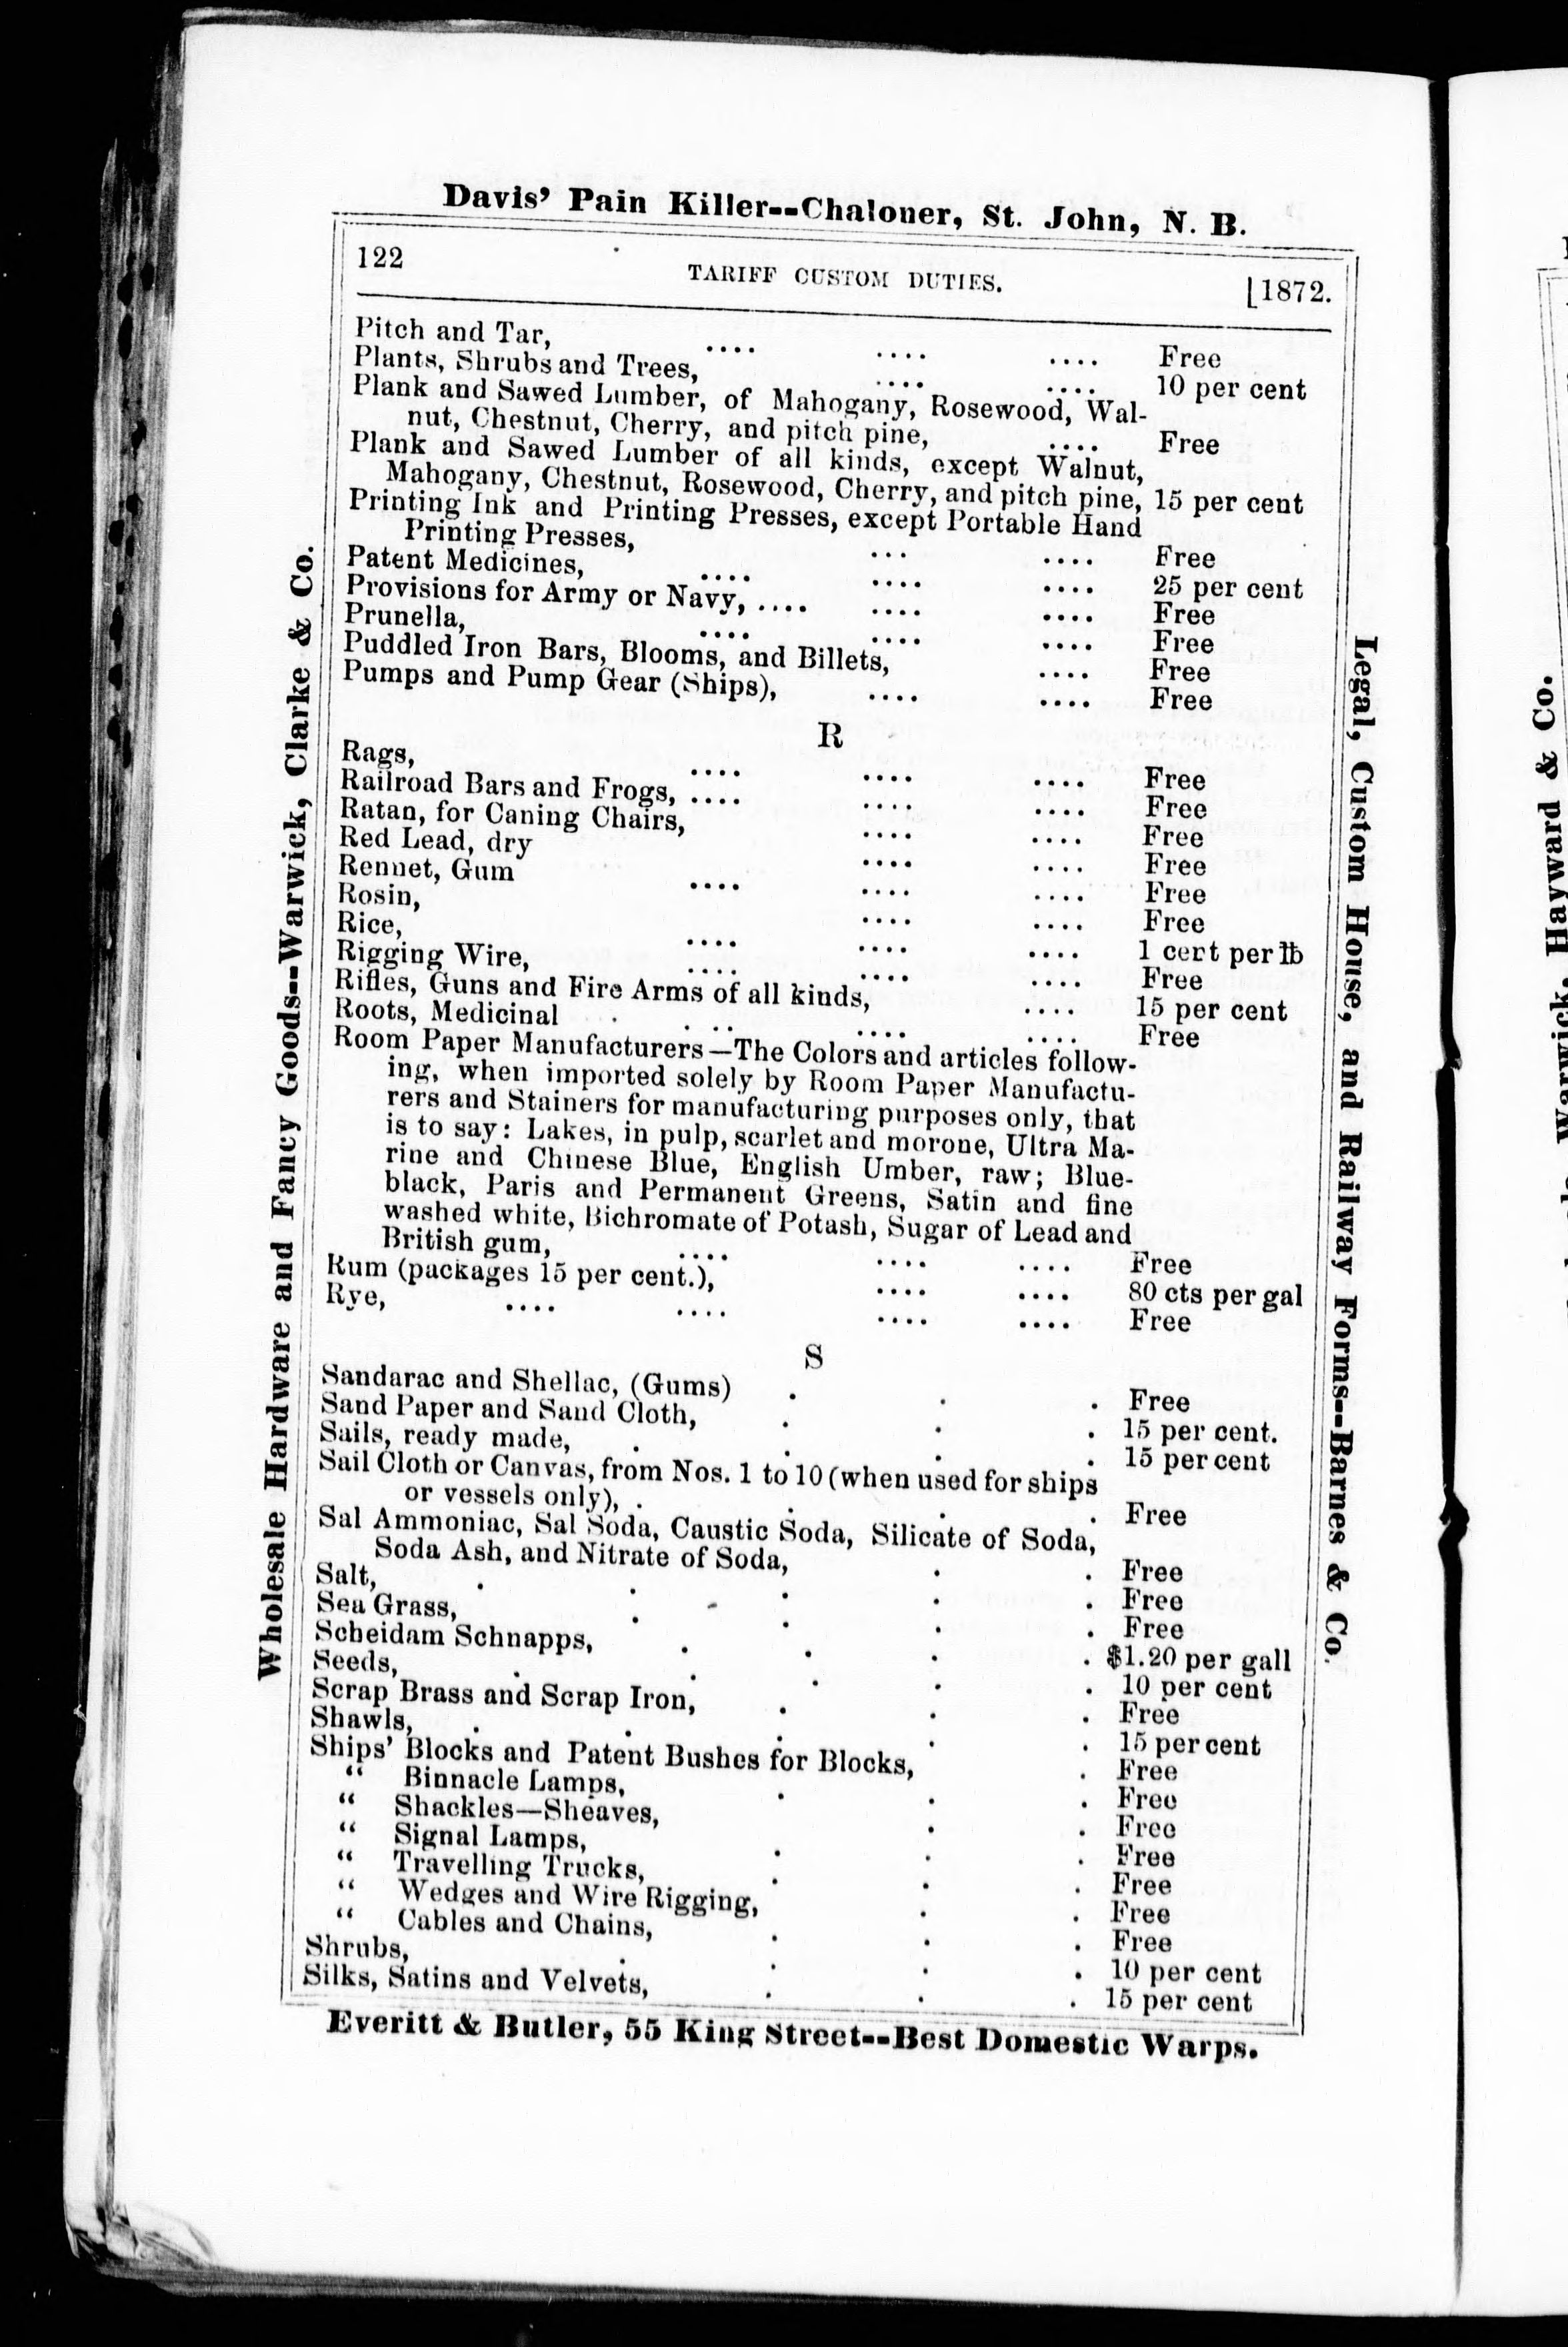 Davis' Pain Killer--Chaloner, St. John, N. B.
122 TARIFF CUSTOM DUTIES. [1872.
Pitch and Tar, .... .... .... Free
Plants, Shrubs and Trees, .... .... 10 per cent
Plank and Sawed Lumber, of Mahogany, Rosewood, Wal-
nut, Chestnut, Cherry, and pitch pine, .... Free
Plank and Sawed Lumber of all kinds, except Walnut,
Mahogany, Chestnut, Rosewood, Cherry, and pitch pine, 15 per cent
Printing Ink and Printing Presses, except Portable Hand
Printing Presses, ... .... Free
Patent Medicines, .... .... .... 25 per cent
Provisions for Army or Navy, .... .... .... Free
Prunella, .... .... .... Free
Puddled Iron Bars, Blooms, and Billets, .... Free
Pumps and Pump Gear (Ships), .... .... Free
R
Rags, .... .... .... Free
Railroad Bars and Frogs, .... .... .... Free
Ratan, for Caning Chairs, .... .... Free
Red Lead, dry .... .... Free
Rennet, Gum .... .... .... Free
Rosin, .... .... Free
Rice, .... .... .... 1 cent per lb
Rigging Wire, .... .... .... Free
Rifles, Guns and Fire Arms of all kinds, .... 15 per cent
Roots, Medicinal .... .... .... Free
Room Paper Manufacturers—The Colors and articles follow-
ing, when imported solely by Room Paper Manufactu-
rers and Stainers for manufacturing purposes only, that
is to say: Lakes, in pulp, scarlet and morone, Ultra Ma-
rine and Chinese Blue, English Umber, raw; Blue-
black, Paris and Permanent Greens, Satin and fine
washed white, Bichromate of Potash, Sugar of Lead and
British gum, .... .... .... Free
Rum (packages 15 per cent.), .... .... 80 cts per gal
Rye, .... .... .... .... Free
S
Sandarac and Shellac, (Gums) . . . Free
Sand Paper and Sand Cloth, . . . 15 per cent.
Sails, ready made, . . . . 15 per cent
Sail Cloth or Canvas, from Nos. 1 to 10 (when used for ships
or vessels only), . . . . Free
Sal Ammoniac, Sal Soda, Caustic Soda, Silicate of Soda,
Soda Ash, and Nitrate of Soda, . . Free
Salt, . . . . . Free
Sea Grass, . . . . Free
Scheidam Schnapps, . . . . $1.20 per gall
Seeds, . . . . . 10 per cent
Scrap Brass and Scrap Iron, . . . Free
Shawls, . . . . . 15 per cent
Ships' Blocks and Patent Bushes for Blocks, . Free
" Binnacle Lamps, . . . Free
" Shackles—Sheaves, . . Free
" Signal Lamps, . . . Free
" Travelling Trucks, . . . Free
" Wedges and Wire Rigging, . . Free
" Cables and Chains, . . . Free
Shrubs, . . . . 10 per cent
Silks, Satins and Velvets, . . . 15 per cent
Everitt & Butler, 55 King Street--Best Domestic Warps.
Wholesale Hardware and Fancy Goods--Warwick, Clarke & Co.
Legal, Custom House, and Railway Forms--Barnes & Co.
Hayward & Co.